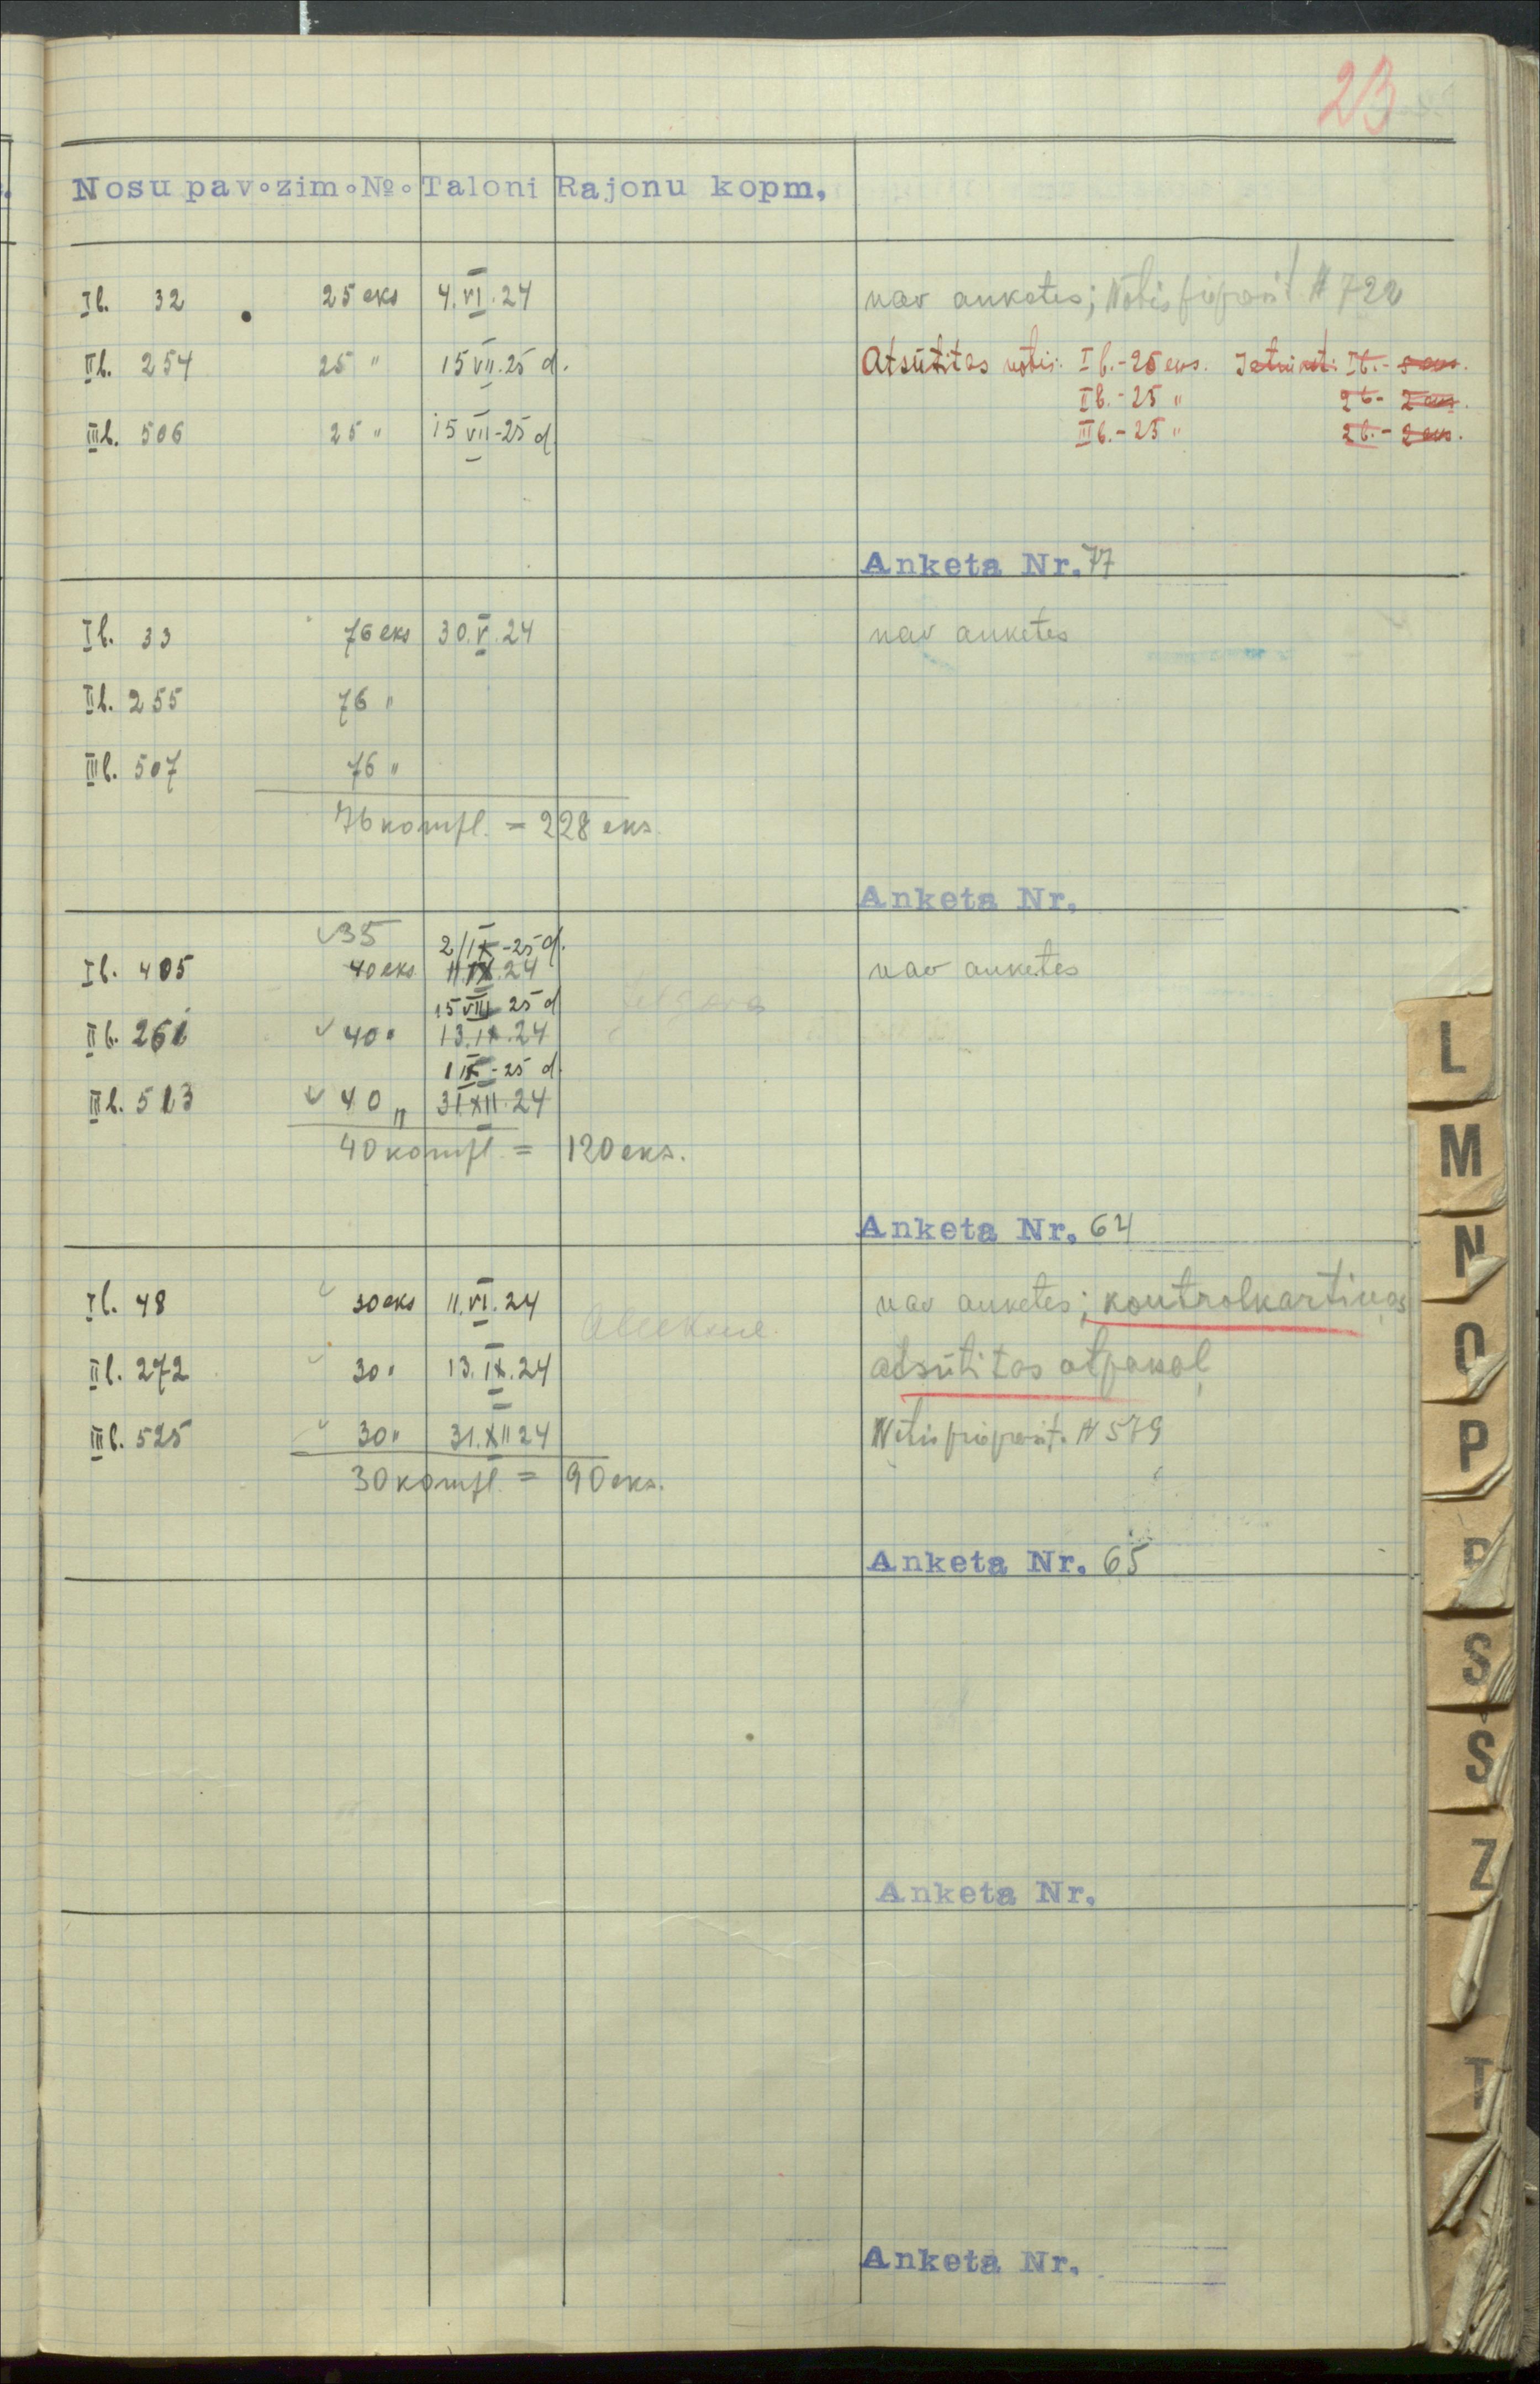 23
Nosu pav. zim. № Taloni Rajonu kopm,
I b. 32 25 eks 4.VI.24 nav anketes; Notis pieprasīt # 722
II b. 254 25 " 15 VII.25 d. Atsūtitas notis: I b.-25 eks. Ietrūkst: I b.-
II b.-25 " 2 b.- 2 eks.
III b. 506 25 " 15 VII-25 d III b.-25 " 2 b.- 2 eks.
Anketa Nr. 77
I b. 33 76 eks 30.V.24 nav anketes
II b. 255 76 "
III b. 507 76 "
76 kompl. = 228 eks.
Anketa Nr.
35 2/IX-25 d.
I b. 405 40 eks 11.IX.24 nav anketes
15 VIII 25 d
II b. 261 40 " 13.IX.24
1 IX-25 d.
III b. 513 40 " 31.XII.24
40 kompl. = 120 eks.
Anketa Nr. 64
I b. 48 30 eks 11.VI.24 nav anketes; kontrolkartiņas
II b. 272 30 " 13.IX.24 atsūtitas atpakaļ
III b. 525 30 " 31.XII 24 Notis pieprasīt. # 579
30 kompl. = 90 eks.
Anketa Nr. 65
Anketa Nr.
Anketa Nr.
L
M
N
O
P
R
S
Š
Z
T